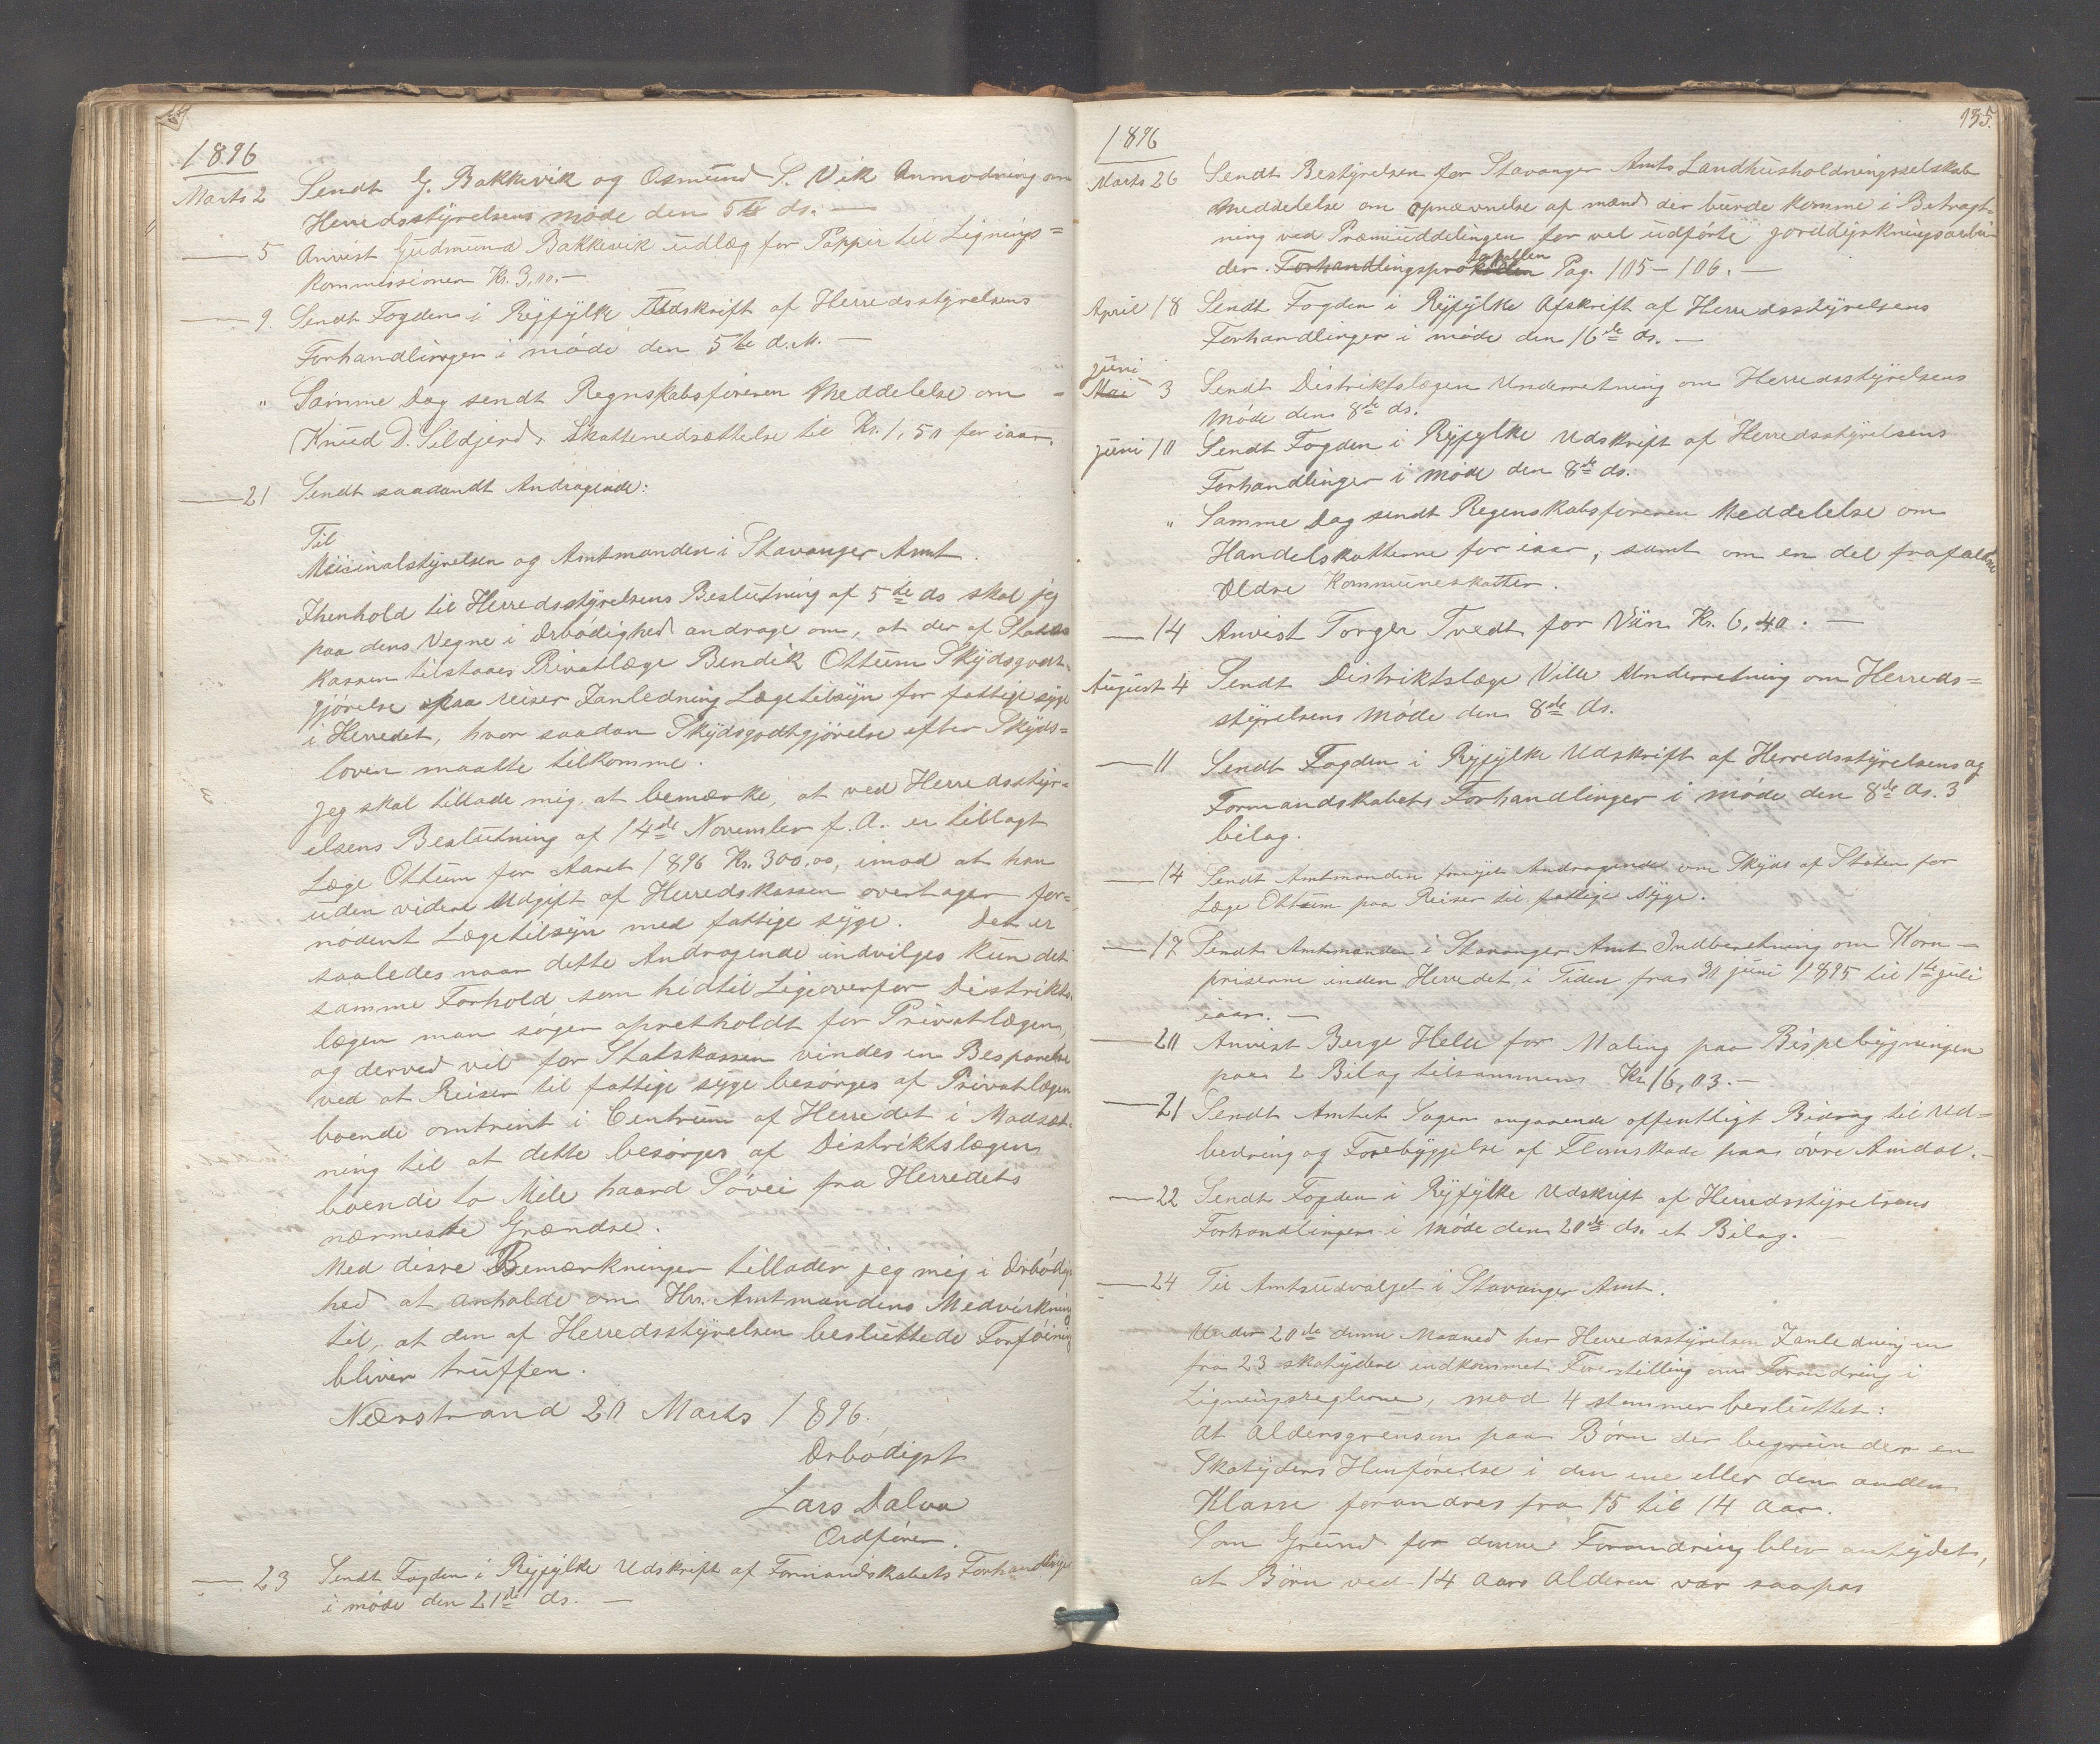 1896
Marts 2 Sendt G. Bakkevik og Osmund S. Vik Anmodning om
Herredsstyrelsens møde den 5te ds. —
— 5 Anvist Gudmund Bakkevik udlæg for Pappir til Lignings=
kommissionen Kr. 3,00. —
— 9. Sendt Fogden i Ryfylke Udskrift af Herredsstyrelsens
Forhandlinger i møde den 5te d. M. —
" Samme Dag sendt Regnskabsføreren Meddelelse om
Knud D. Sildjerds Skattenedsættelse til Kr. 1,50 for iaar.
— 21 Sendt saadandt Andragende:
Til
Medicinalstyrelsen og Amtmanden i Stavanger Amt.
Ihenhold til Herredsstyrelsens Beslutning af 5te ds skal jeg
paa dens Vegne i Ærbødighed andrage om, at der af Stats
kassen tilstaaes Privatlæge Bendik Ottum Skydsgodt=
gjørelse paa reiser Ianledning Lægetilsyn for fattige syge
i Herredet, hvor saadan Skydsgodtgjørelse efter Skyds=
loven maatte tilkomme.
Jeg skal tillade mig, at bemærke, at ved Herredsstyr=
elsens Beslutning af 14de November f. A. er tillagt
Læge Ottum for Aaret 1896 Kr. 300,00, imod at han
uden videre Udgift af Herredskassen overtager for=
nødent Lægetilsyn med fattige syge. Det er
saaledes naar dette Andragende indvilges kun det
samme Forhold som hidtil Ligeoverfor Distrikts
lægen man søger opretholdt for Privatlægen,
og derved vil for Statskassen vindes en Besparelse
ved at Reiser til fattige syge besørges af Privatlægen
boende omtrent i Centrum af Herredet i Modsæt=
ning til at dette besørges af Distriktslægen
boende to Mile haard Søvei fra Herredets
nærmeste Grændse.
Med disse Bemærkninger tillader jeg mig i Ærbødig
hed at anholde om Hr. Amtmandens Medvirkning
til, at den af Herredsstyrelsen besluttede Forføining
bliver truffen.
Nærstrand 20 Marts 1896.
Ærbødigst
Lars Dalva
Ordfører.
— 23 Sendt Fogden i Ryfylke Udskrift af Formandskabets Forhandlinger
i møde den 21de ds. —
135.
1896
Marts 26 Sendt Bestyrelsen for Stavanger Amts Landhusholdningsselskab
Meddelelse om opnævnelse af mænd der burde komme i Betragt=
ning ved Præmiuddelingen for vel udførte jorddyrkningsarbei
der. Forhandlingsprotokollen Pag. 105–106. —
April 18 Sendt Fogden i Ryfylke Afskrift af Herredsstyrelsens
Forhandlinger i møde den 16de ds. —
Juni
Mai 3 Sendt Distriktslægen Underretning om Herredsstyrelsens
Møde den 8de ds.
Juni 10 Sendt Fogden i Ryfylke Udskrift af Herredsstyrelsens
Forhandlinger i Møde den 8de ds.
" Samme Dag sendt Regenskabsføreren Meddelelse om
Handelskatterne for iaar, samt om en del frafaldne
Ældre Kommuneskatter.
— 14 Anvist Torger Tvedt for Viin Kr. 6,40. —
August 4 Sendt Distriktslæge Ville Underretning om Herreds=
styrelsens Møde den 8de ds.
— 11 Sendt Fogden i Ryfylke Udskrift af Herredsstyrelsens og
Formandskabets Forhandlinger i møde den 8de ds. 3
bilag.
— 14 Sendt Amtmanden fornyet Andragende om Skyds af Staten for
Læge Ottum paa Reiser til fattige syge.
— 17 Sendt Amtmanden i Stavanger Amt Indberetning om Korn—
priserne inden Herredet, i Tiden fra 30 juni 1895 til 1ste juli
iaar. —
— 20 Anvist Berge Helle for Maling paa Bispebygningen
paa 2 Bilag tilsammen Kr. 16,03. —
— 21 Sendt Amtet Sagen angaaende offentligt Bidrag til Ud=
bedring og Forebyggelse af Flomskade paa øvre Amdal. —
— 22 Sendt Fogden i Ryfylke Udskrift af Herredsstyrelsens
Forhandlinger i Møde den 20de ds. et Bilag.
— 24 Til Amtsudvalget i Stavanger Amt.
Under 20de denne Maaned har Herredsstyrelsen Ianledning en
fra 23 skatydere indkommet Forestilling om Forandring i
Ligningsreglerne, mod 4 stemmer besluttet:
At aldersgrensen paa Børn der begrunder en
Skatyders Henførelse i den ene eller den anden
Klasse forandres fra 15 til 14 Aar.
Som Grund for denne Forandring blev antydet,
at Børn ved 14 Aars Alderen var saapas